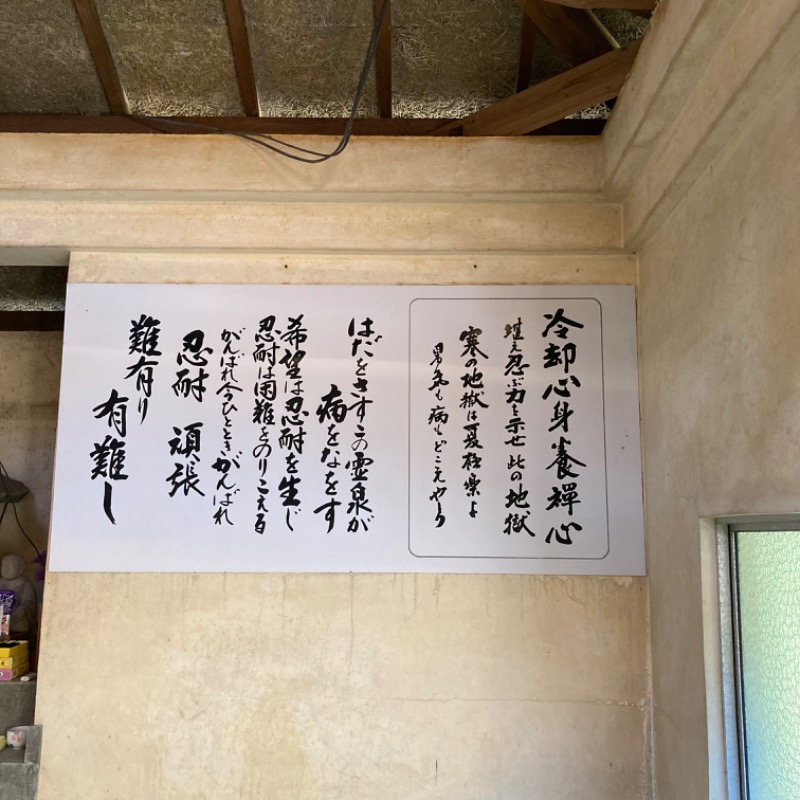 冷却心身養禅心
蛙え忍ぶ力を示せ此の地獄
寒の地獄は夏極楽よ
暑気も病もどこえやら
はだをさすこの霊泉が
病をなをす
希望は忍耐を生じ
忍耐は困難をのりこえる
がんばれ今ひとときがんばれ
忍耐 頑張
難有り
有難し